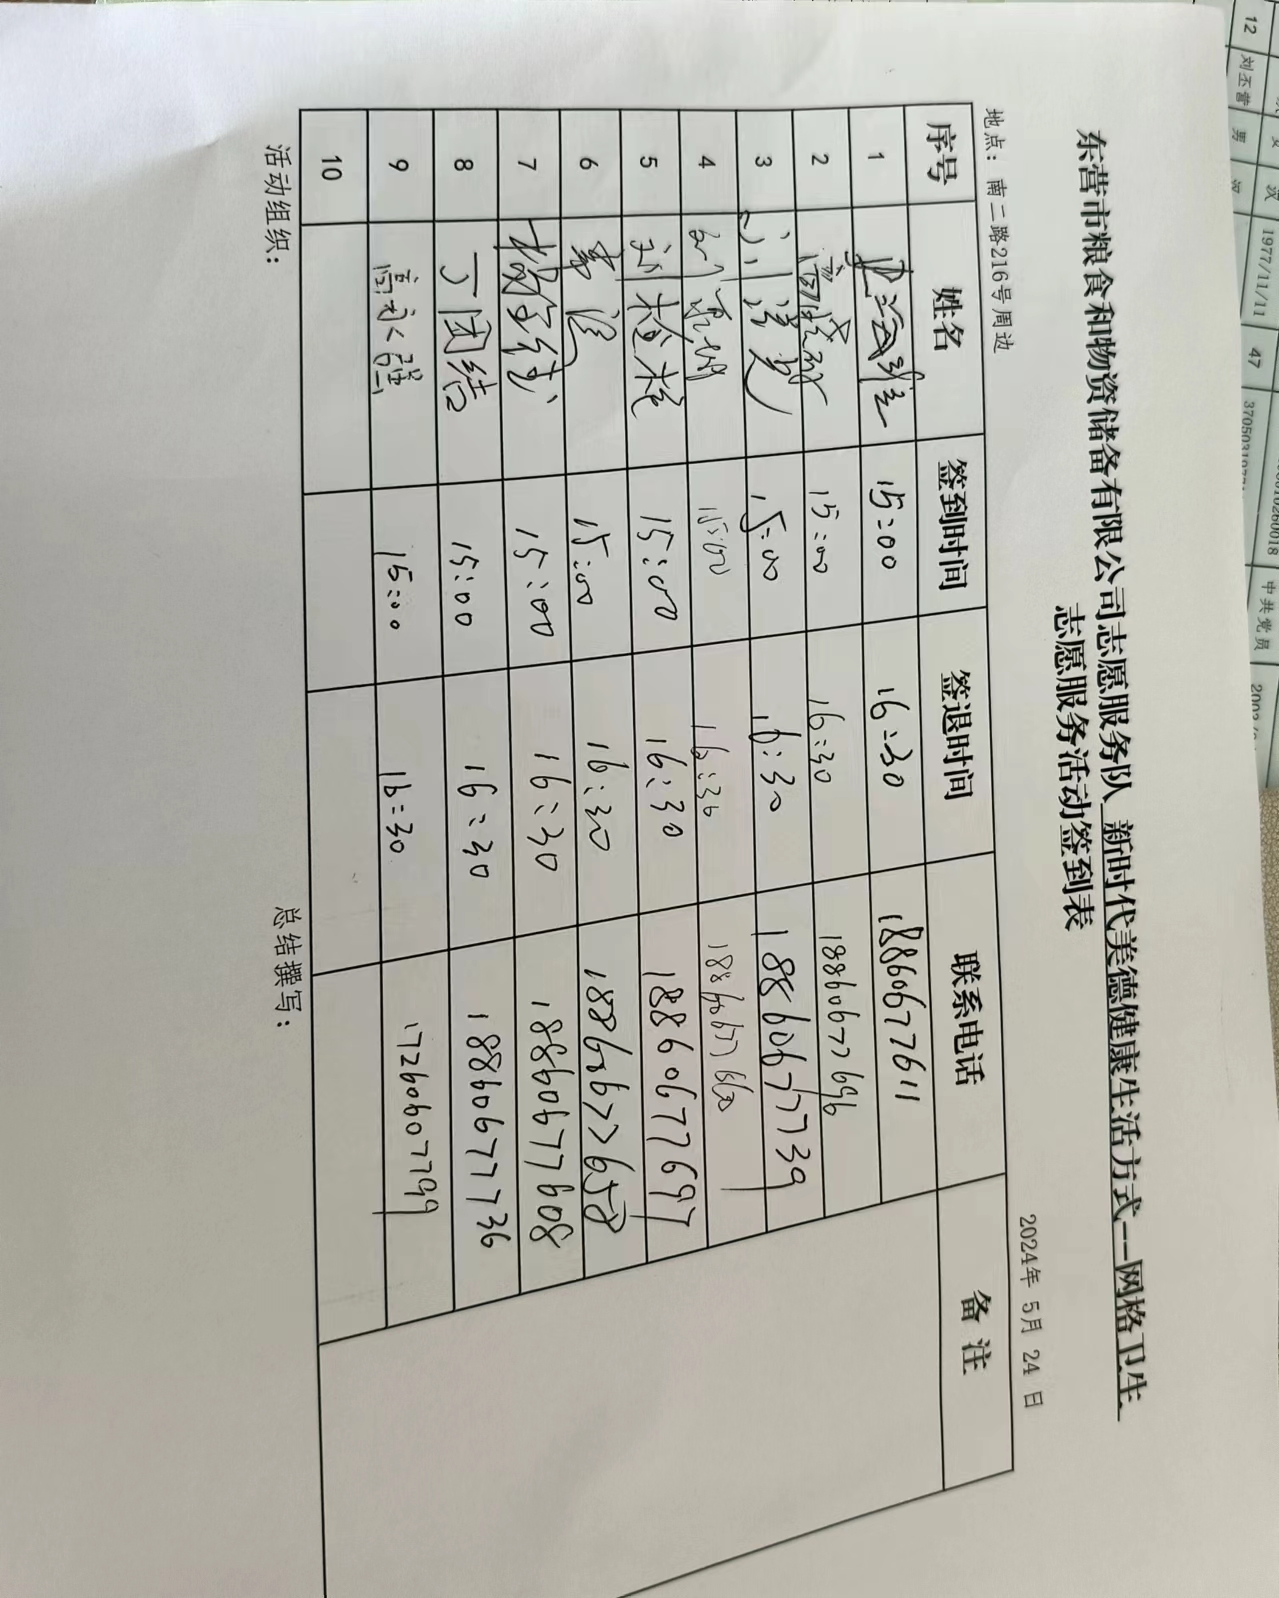 东营市粮食和物资储备有限公司志愿服务队 新时代美德健康生活方式--网格卫生
志愿服务活动签到表
地点：南二路216号周边 2024年 5月 24 日
序号 姓名 签到时间 签退时间 联系电话 备 注
1 15:00 16:30 18860677611
2 15:00 16:30 18860677696
3 15:00 16:30 18860677739
4 15:00 16:30
5 15:00 16:30 18860677697
6 15:00 16:30 18860677658
7 15:00 16:30 18860677608
8 丁团结 15:00 16:30 18860677736
9 15:00 16:30 17260607799
10
活动组织： 总结撰写：
12 刘丕营 男 汉 1977/11/11 47 中共党员